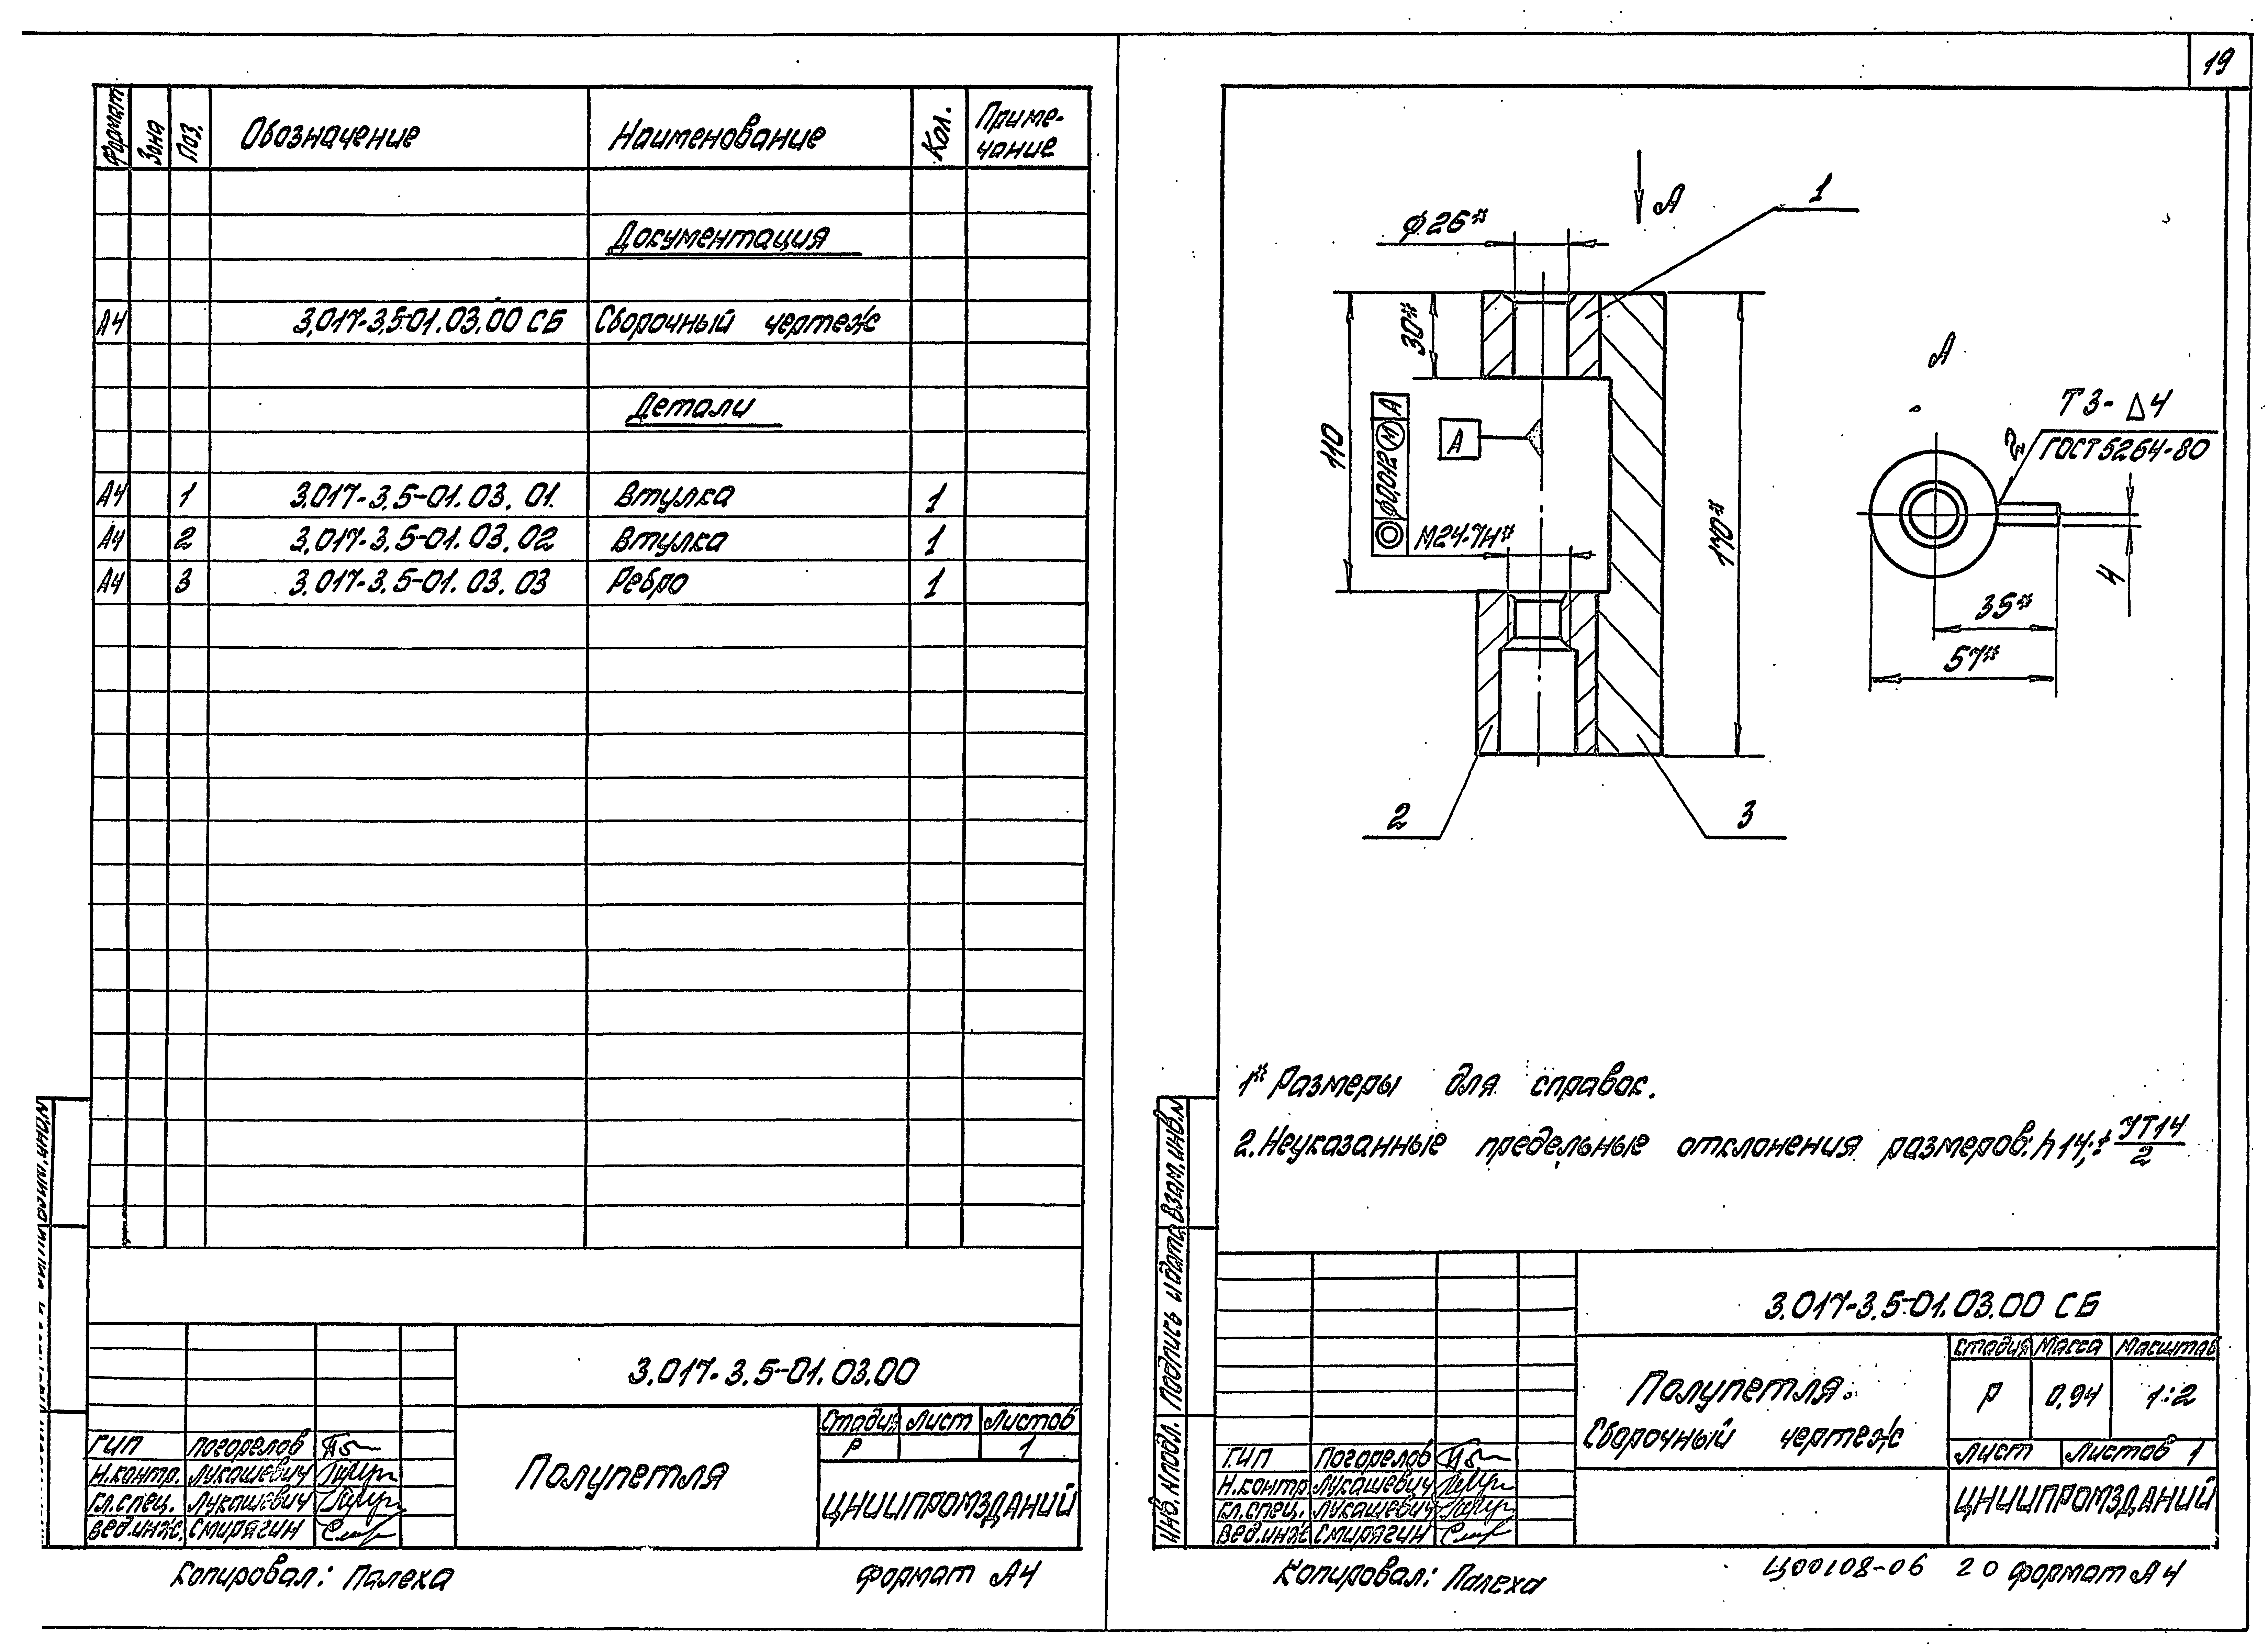 19
Формат Зона Поз. Обозначение Наименование Кол. Приме-
чание
Документация
А4 3.017-3.5-01.03.00 СБ Сборочный чертеж
Детали
А4 1 3.017-3.5-01.03.01. Втулка 1
А4 2 3.017-3.5-01.03.02 Втулка 1
А4 3 3.017-3.5-01.03.03 Ребро 1
3.017-3.5-01.03.00
Стадия Лист Листов
Р 1
Полупетля
ЦНИИПРОМЗДАНИЙ
ГИП Погорелов
Н.контр. Лукашевич
Гл.спец. Лукашевич
Вед.инж. Смирягин
Копировал: Палеха формат А4
А
1
ϕ26*
30*
110
ϕ0,012 М А
А
М24-7Н*
170*
2
3
А
Т3-△4
ГОСТ 5264-80
4
35*
57*
1* Размеры для справок.
2. Неуказанные предельные отклонения размеров: h14; ± УТ14
2
Взам.инв.N
Подпись и дата
Инв.Nподл.
3.017-3.5-01.03.00 СБ
Стадия Масса Масштаб
Полупетля.
Сборочный чертеж
Р 0,94 1:2
Лист Листов 1
ЦНИИПРОМЗДАНИЙ
ГИП Погорелов
Н.контр. Лукашевич
Гл.спец. Лукашевич
Вед.инж Смирягин
Копировал: Палеха Ц00108-06 20 формат А4